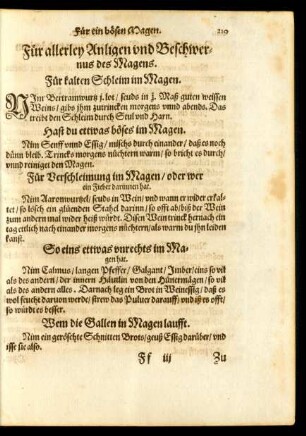 Für ein bösen Magen.
Für allerley Anligen vnd Beschwer-
nus des Magens.
Für kalten Schleim im Magen.
NIm Bertramwurtz j. lot / seuds in j. Maß guten weissen
Weins / gibs ihm zutrincken morgens vnnd abends. Das
treibt den Schleim durch Stul vnd Harn.
Hast du ettwas böses im Magen.
Nim Senff vnnd Essig / mischs durch einander / daß es noch
dünn bleib. Trincks morgens nüchtern warm / so bricht es durch /
vnnd reiniget den Magen.
Für Verschleimung im Magen / oder wer
ein Fieber darinnen hat.
Nim Aaronwurtzel / seuds in Wein / vnd wann er wider erkal-
tet / so lösch ein glüenden Stahel darinn / so offt ab / biß der Wein
zum andern mal wider heiß würdt. Disen Wein trinck hernach ein
tag etlich nach einander morgens nüchtern / als warm du jhn leiden
kanst.
So eins ettwas vnrechts im Ma-
gen hat.
Nim Calmus / langen Pfeffer / Galgant / Imber / eins so vil
als des andern / der innern Häutlin von den Hünermägen / so vil
als des andern alles. Darnach leg ein Brot in Weinessig / daß es
wol feucht daruon werde / strew das Puluer darauff / vnd iß es offt /
so würdt es besser.
Wem die Gallen in Magen laufft.
Nim ein geröschte Schnitten Brots / geuß Essig darüber / vnd
isse sie also.
Ff iij Zu